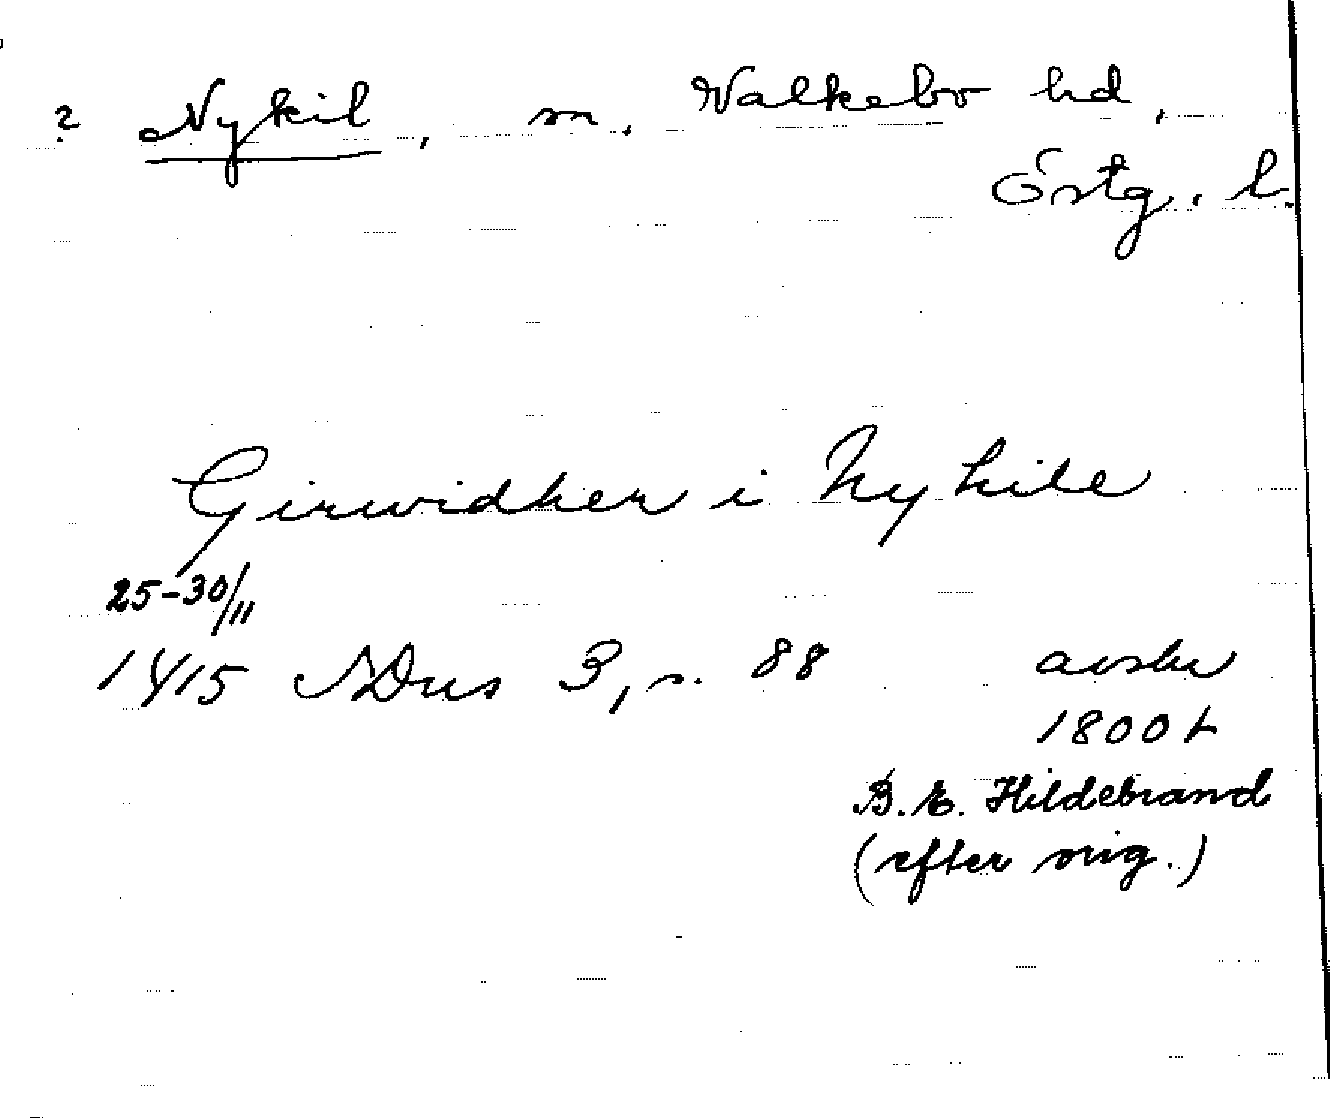 ? Nykil, sn, Valkebo hd,
Östg. l.
Girwidher i Nykile
25-30/11
1415 ADus 3, s. 88 avskr
1800 t
B. E. Hildebrand
(efter orig.)